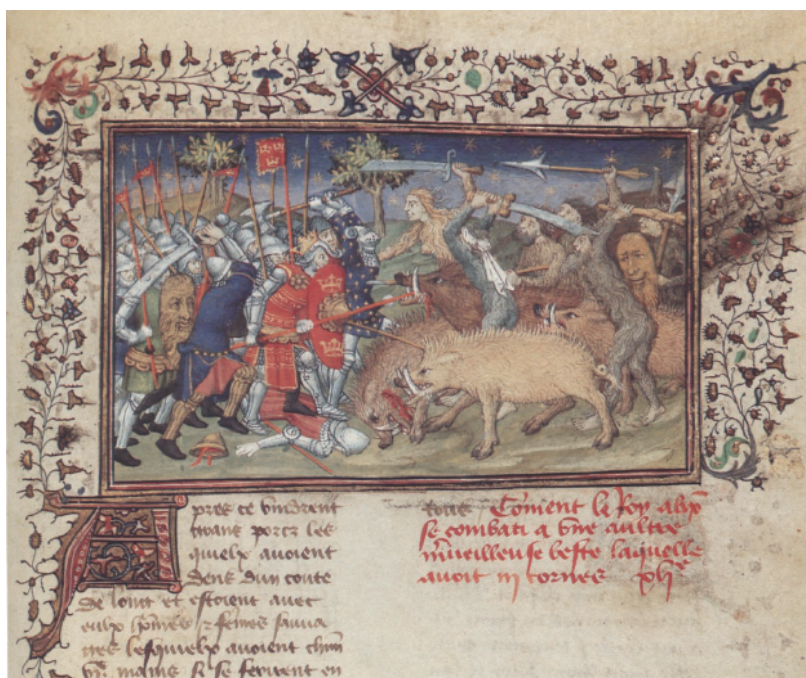 Apres ce vindrent
grans porcz les
quielx avoient
dens dun coute
de lonc et estoient avec
eulx hõmes ⁊ femes sauva
ges lesquielx avoient
mains si se ferirent en
Cõment le Roy alix̃
se combati a vne aultre
m̃veilleuse beste laquelle
avoit iij cornes